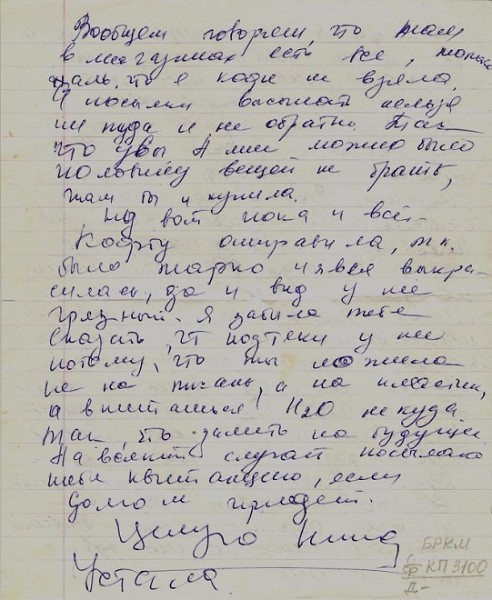 Вообщем говорят, что там
в магазинах есть все, только
жаль, что я кофе не взяла.
И посылки высылать нельзя
ни туда и не обратно. Так
что увы. А мне можно было
половину вещей не брать,
там бы и купила.
Ну вот пока и всё.
Кофту отправила, т.к.
было жарко и я вся выкра-
силась, да и вид у нее
грязный. Я забыла тебе
сказать, чт подтеки у нее
потому, что ты ложила
не на ткань, а на пластик,
а впитаться H2O некуда.
Так, что заметь на будущее.
На всякий случай посылаю
тебе квитанцию, если
долго не придет.
Целую Нина
Устала.
БРКМ
КП 3100
Д-